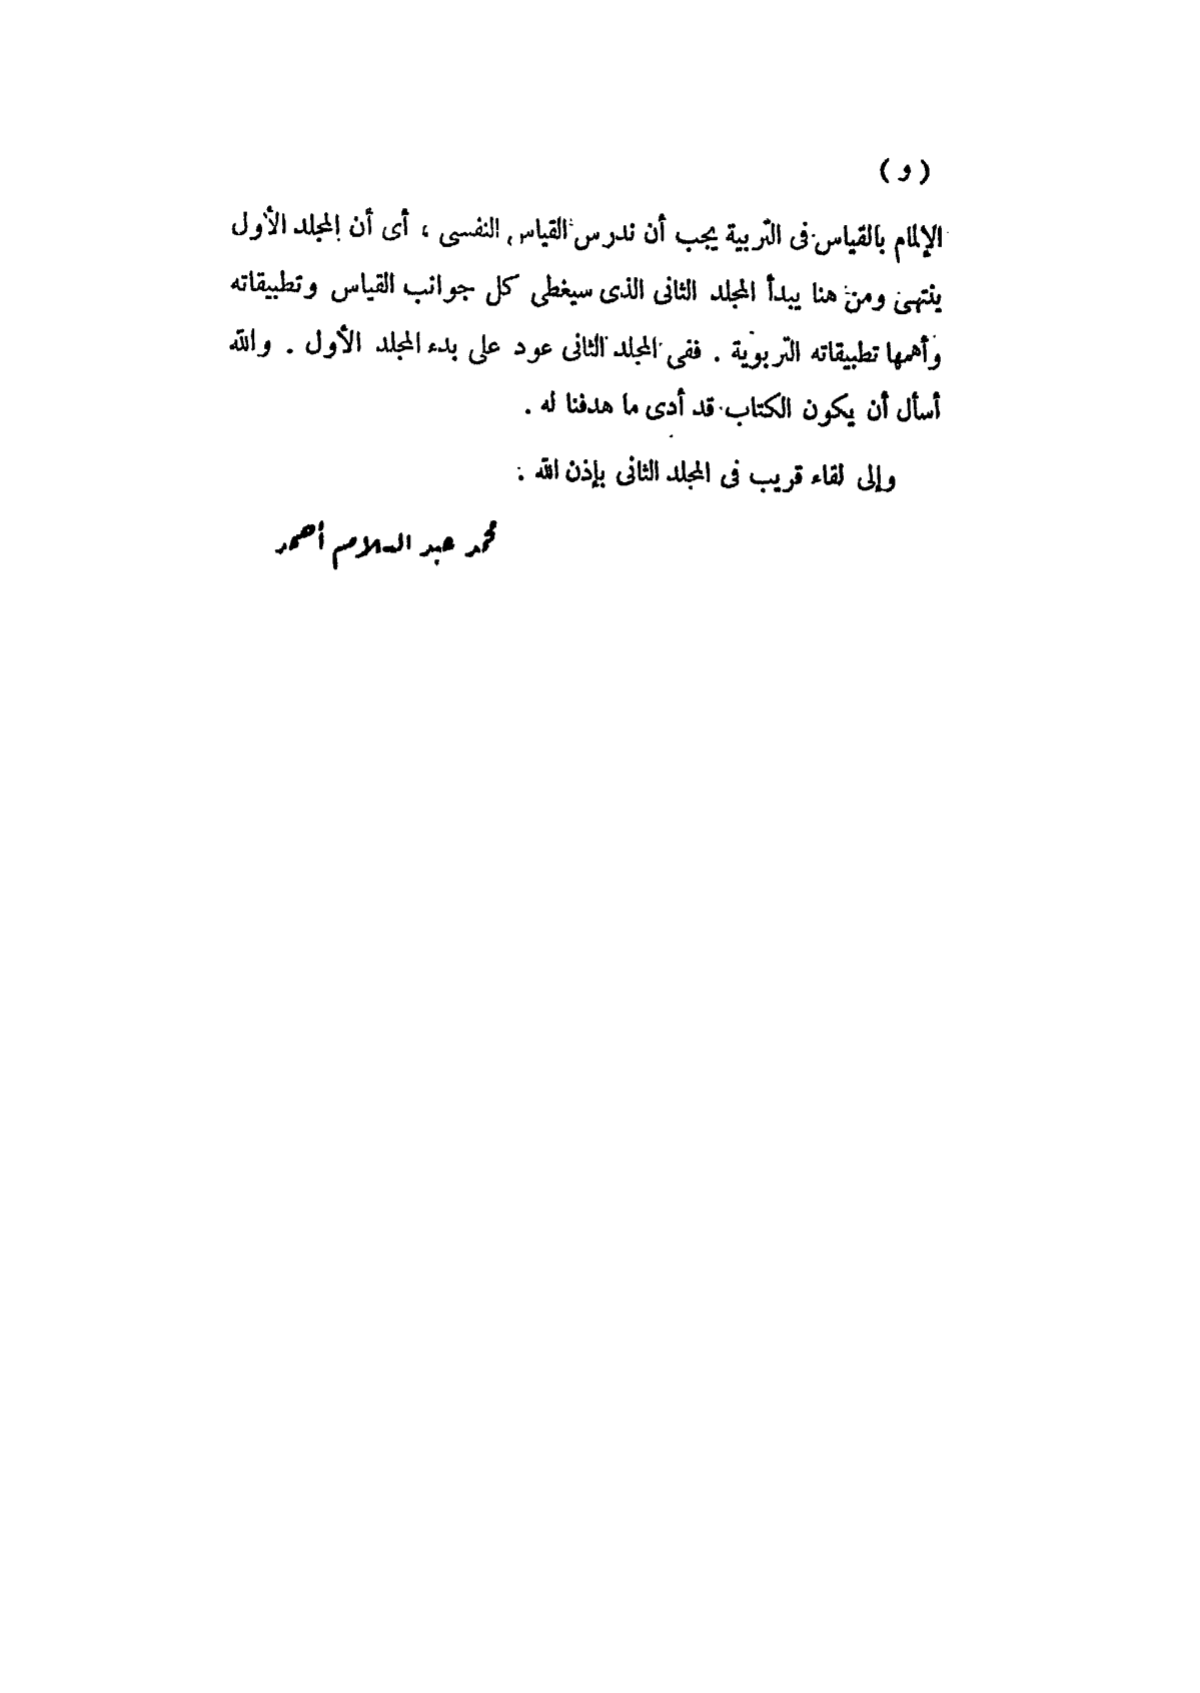 ( و )
الإلمام بالقياس فى التربية يجب أن ندرس القياس النفسى ، أى أن المجلد الأول
ينتهى ومن هنا يبدأ المجلد الثانى الذى سيغطى كل جوانب القياس وتطبيقاته
وأهمها تطبيقاته التربوية . ففى المجلد الثانى عود على بدء المجلد الأول . والله
أسأل أن يكون الكتاب قد أدى ما هدفنا له .
وإلى لقاء قريب فى المجلد الثانى بإذن الله .
محمد عبد السلام أحمد